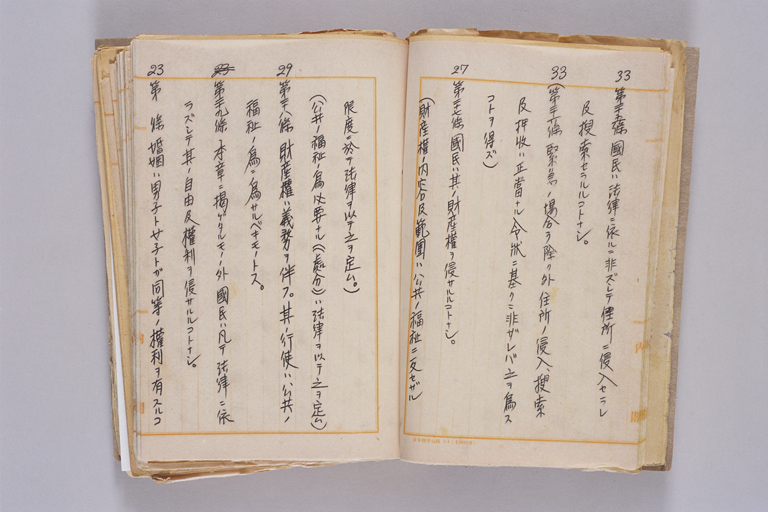 33
第三十五條 國民ハ法律ニ依ルニ非ズシテ住所ニ侵入セラレ
及搜索セラルルコトナシ。
33
(第三十六條 緊急ノ場合ヲ除ク外住所ノ侵入、搜索
及押收ハ正當ナル令狀ニ基クニ非ザレバ之ヲ爲ス
コトヲ得ズ)
27
第三十七條 國民ハ其ノ財産權ヲ侵サルルコトナシ。
(財産權ノ內容及範圍ハ公共ノ福祉ニ反セザル
限度ニ於テ法律ヲ以テ之ヲ定ム。)
(公共ノ福祉ノ爲必要ナル(處分)ハ法律ヲ以テ之ヲ定ム)
29
第三十八條 財産權ハ義務ヲ伴フ。其ノ行使ハ公共ノ
福祉ノ爲ニ爲サルベキモノトス。
第三十九條 本章ニ揭ゲタルモノノ外國民ハ凡テ法律ニ依
ラズシテ其ノ自由及權利ヲ侵サルルコトナシ。
23
第 條 婚姻ハ男子ト女子トガ同等ノ權利ヲ有スルコ